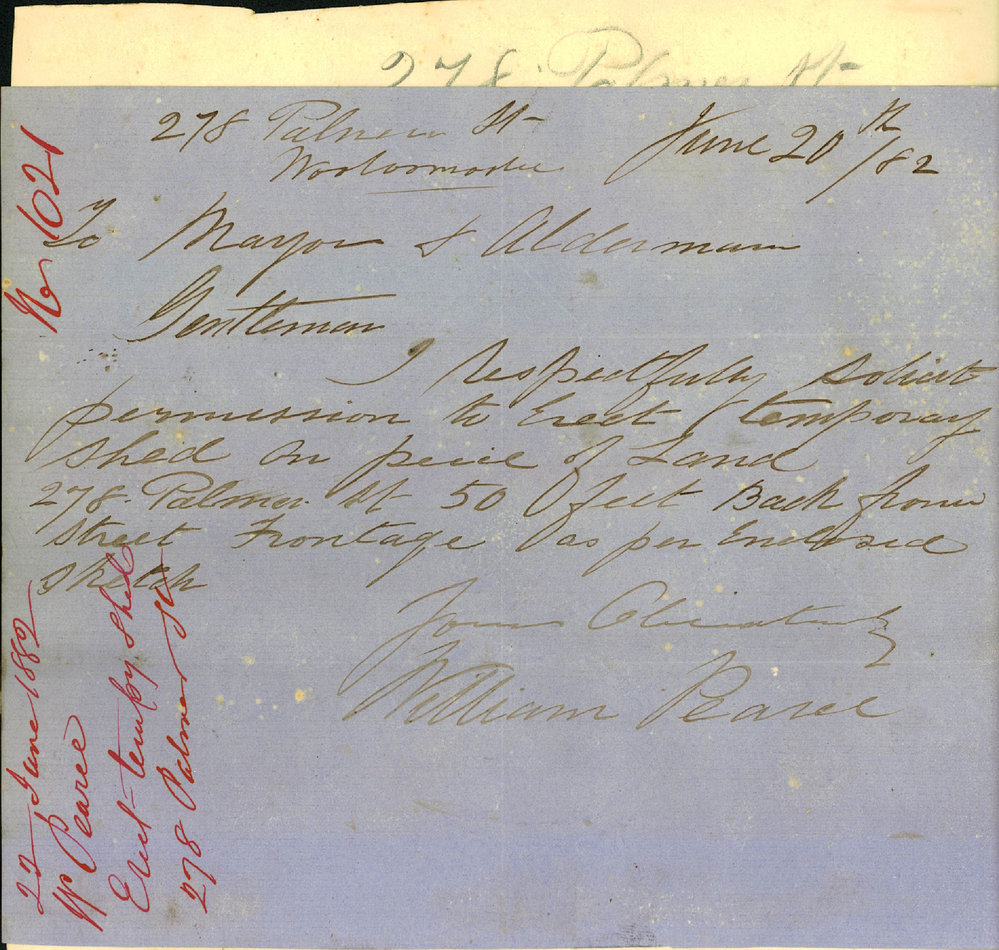 278 Palmer St
278 Palmer St June 20th/82
Wooloomooloo
To Mayor & Alderman
Gentleman
I respectfully solicit
permission to Erect temporay
shed on peice of Land
278 Palmer St 50 feet Back from
Street Frontage as per Enclosed
sketch
Yours Obediently
William Pearce
No 1021
22 June 1882
W Pearce
Erect tempy Shed
278 Palmer St